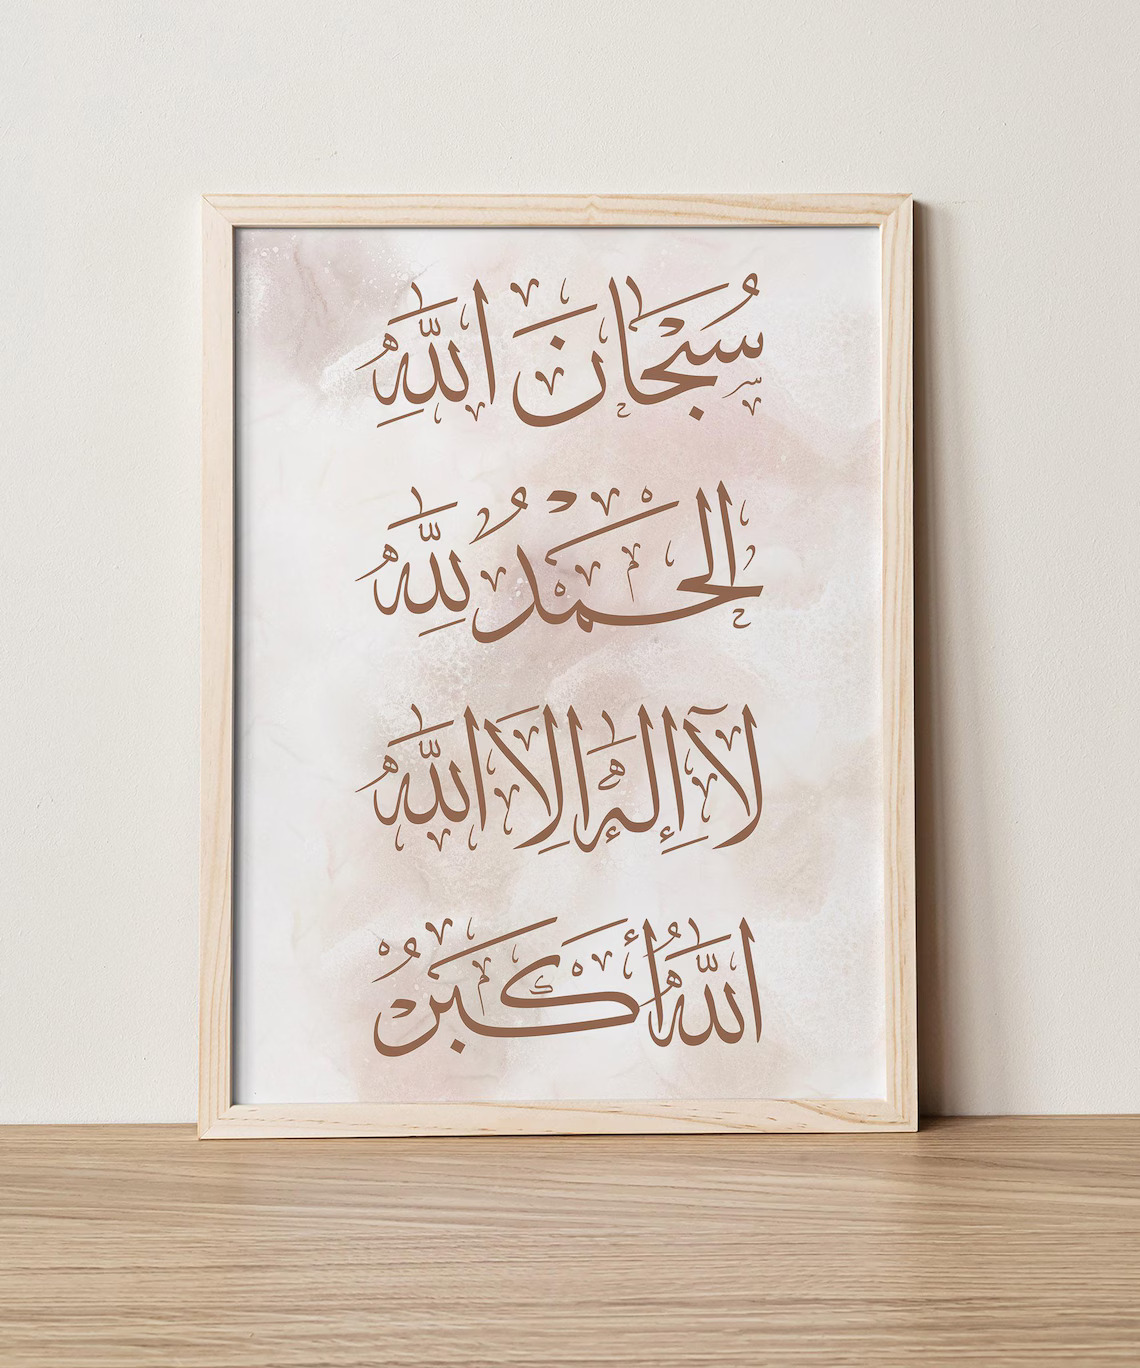 سُبْحَانَ اللهِ
الْحَمْدُ لِلّٰهِ
لَآ إِلٰهَ اِلَّا اللهُ
اللهُ أَكْبَرُ